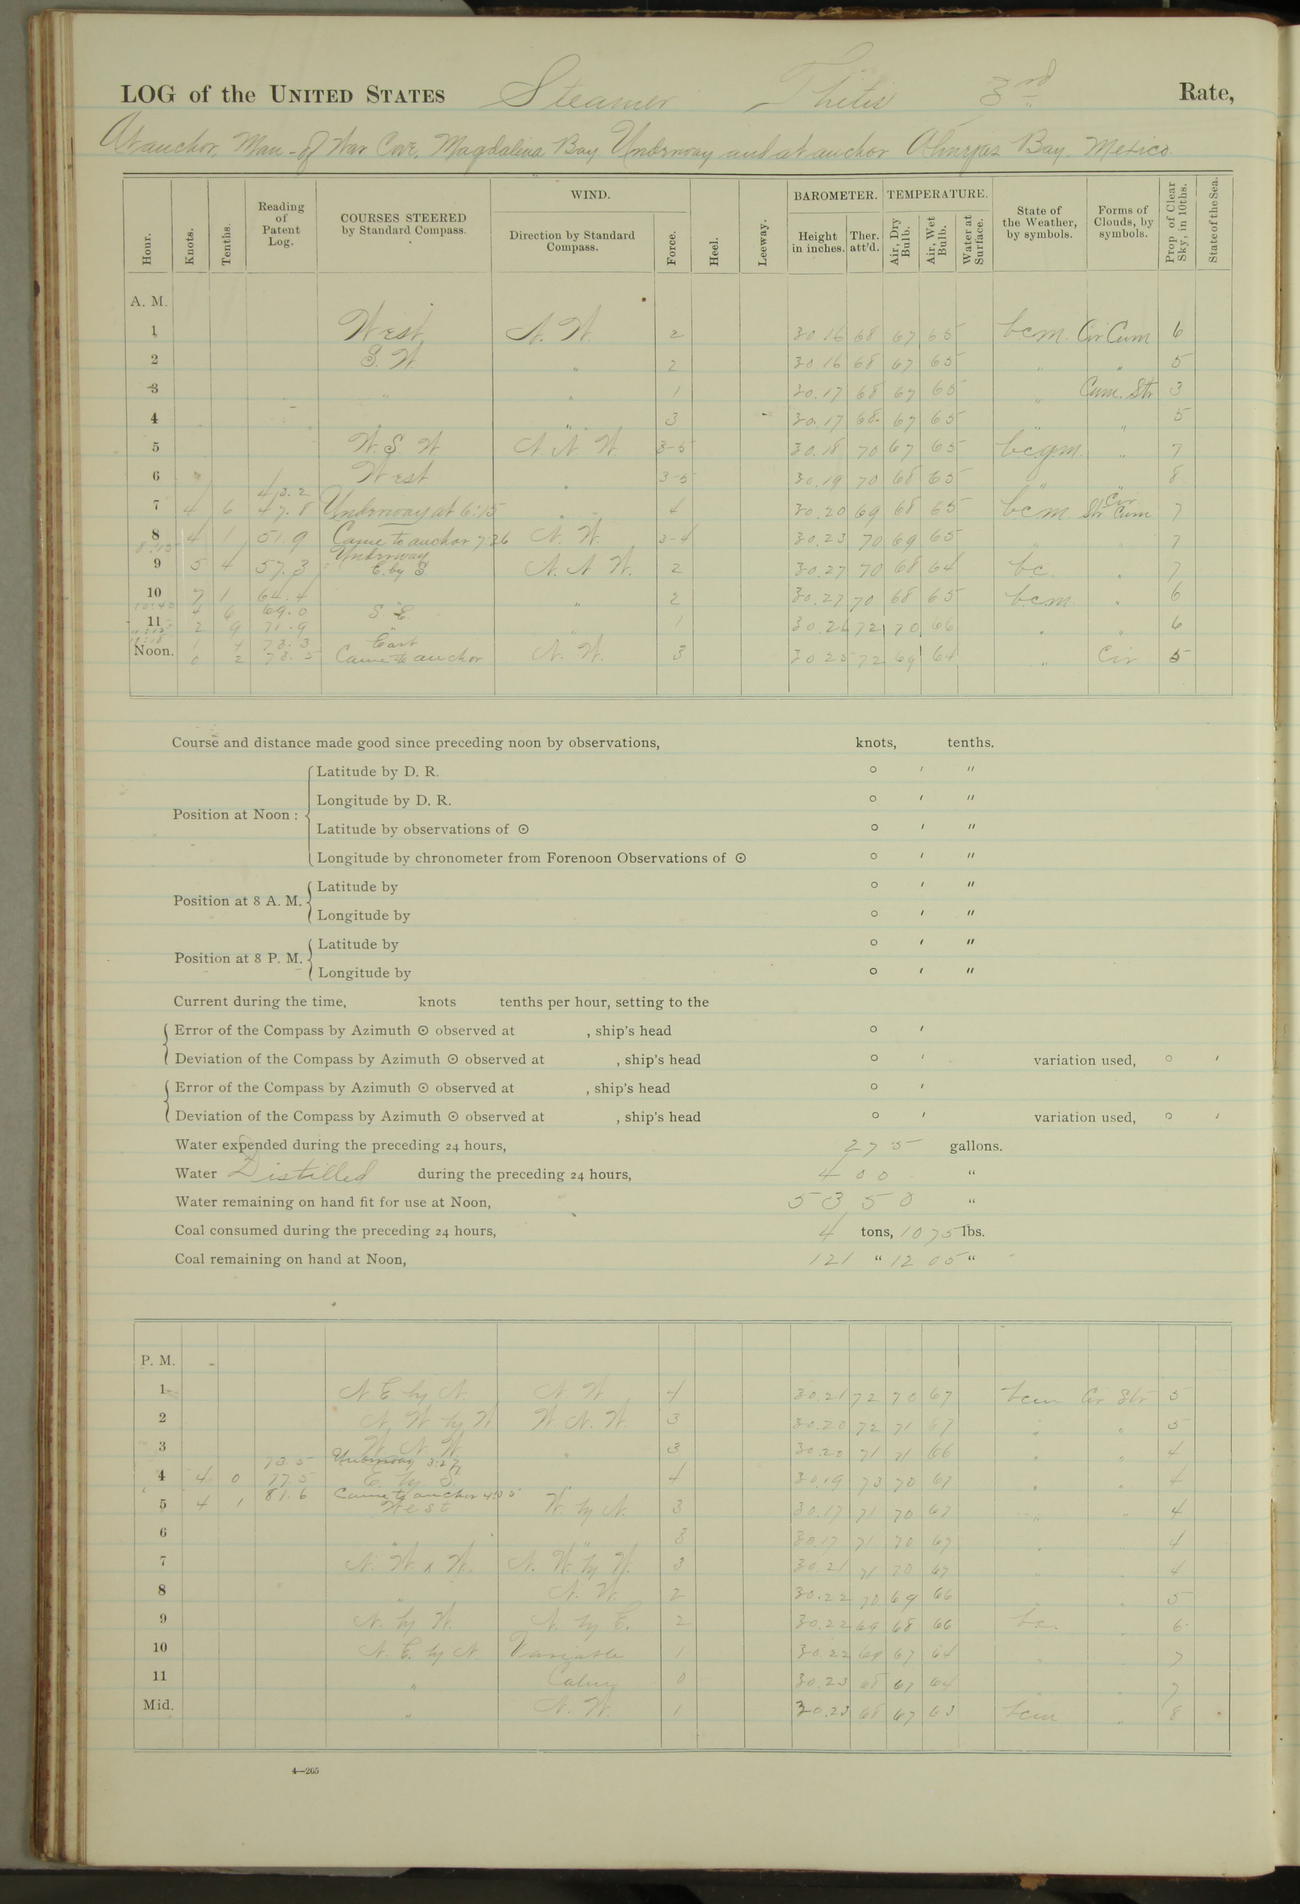 LOG of the UNITED STATES Steamer Thetis 3rd Rate,
At anchor, Man-of War Cove, Magdalena Bay Underway and at anchor Bay. Mexico
Hour. Knots. Tenths. Reading of Patent Log. COURSES STEERED by Standard Compass. WIND. Direction by Standard Compass. Force. Heel. Leeway. BAROMETER. Height in inches. Ther. att'd. TEMPERATURE. Air, Dry Bulb. Air, Wet Bulb. Water at Surface. State of the Weather, by symbols. Forms of Clouds, by symbols. Prop. of Clear Sky, in 10ths. State of the Sea.
A. M.
1 West N. W. 2 30.16 68 67 65 bcm. Cir Cum 6
2 S. W. " 2 30.16 68 67 65 " " 5
3 " " 1 30.17 68 67 65 " Cum. Str 3
4 " " 3 30.17 68 67 65 " " 5
5 W. S. W N N W 3-5 30.18 70 67 65 bcgm " 7
6 West " 3-5 30.19 70 68 65 " " 8
43.2
7 4 6 47.8 Underway at 6:15 " " 4 30.20 69 68 65 bcm Cir Str Cum 7
8 4 1 51.9 Came to anchor 7:26 N. W. 3-4 30.23 70 69 65 7
8:15 Underway
9 5 4 57.3 E. by S N. N W. 2 30.27 70 68 64 bc. " 7
10 7 1 64.4 " 2 30.27 70 68 65 bcm " 6
10:40 4 6 69.0 S E
11 2 9 71.9 " " 1 30.26 72 70 66 " " 6
1 4 73.3 East
Noon. 0 2 73.5 Came to anchor N. W. 3 30.25 72 69 64 " Cir 5
Course and distance made good since preceding noon by observations, knots, tenths.
Position at Noon :
Latitude by D. R. ° ′ ″
Longitude by D. R. ° ′ ″
Latitude by observations of ☉ ° ′ ″
Longitude by chronometer from Forenoon Observations of ☉ ° ′ ″
Position at 8 A. M.
Latitude by ° ′ ″
Longitude by ° ′ ″
Position at 8 P. M.
Latitude by ° ′ ″
Longitude by ° ′ ″
Current during the time, knots tenths per hour, setting to the
Error of the Compass by Azimuth ☉ observed at , ship's head ° ′
Deviation of the Compass by Azimuth ☉ observed at , ship's head ° ′ variation used, ° ′
Error of the Compass by Azimuth ☉ observed at , ship's head ° ′
Deviation of the Compass by Azimuth ☉ observed at , ship's head ° ′ variation used, ° ′
Water expended during the preceding 24 hours, 275 gallons.
Water Distilled during the preceding 24 hours, 400 "
Water remaining on hand fit for use at Noon, 5350 "
Coal consumed during the preceding 24 hours, 4 tons, 1075 lbs.
Coal remaining on hand at Noon, 121 " 1205 "
P. M.
1 N. E by N. N. W 4 30.21 72 70 67 bcm Cir Str 5
2 N. W by W W. N. W. 3 30.20 72 71 67 " " 5
3 W. N. W. " 3 30.20 71 71 66 " " 4
73.5 Underway 3:27
4 4 0 77.5 E. by S. " 4 30.19 73 70 67 " " 4
81.6 Came to anchor 4:35
5 4 1 West W. by N. 3 30.17 71 70 67 " " 4
6 " " 3 30.17 71 70 67 4
7 N. W x W. N. W. by W. 3 30.21 71 70 67 4
8 " N. W. 2 30.22 70 69 66 " 5
9 N. by W. N. by E. 2 30.22 69 68 66 bc. " 6
10 N. E. by N. Variable 1 30.22 69 67 64 " 7
11 " Calm 0 30.23 68 67 64 " 7
Mid. " N. W. 1 30.23 68 67 63 bcm " 8
4—265